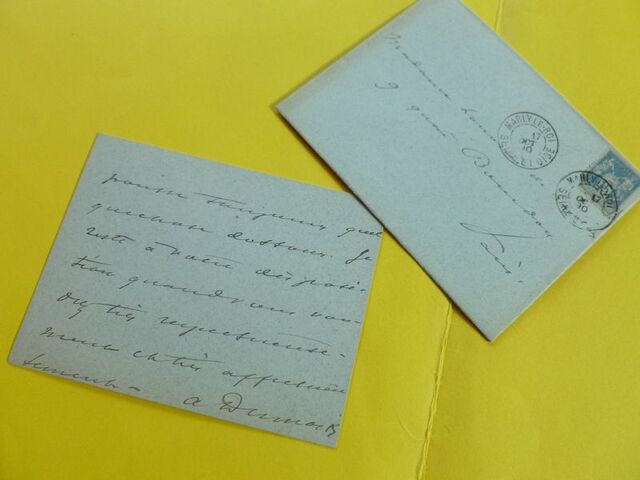 pousse toujours quel
quechose dessous. Je
reste à votre disposi-
tion quand vous vou-
drez très respectueuse-
ment et très affectueu
sement -
a Dumas
Madame
9 quai Bourbon
Paris.
MARLY-LE-ROI
17
OCT
SEINE ET OISE
MARLY-LE-ROI
17